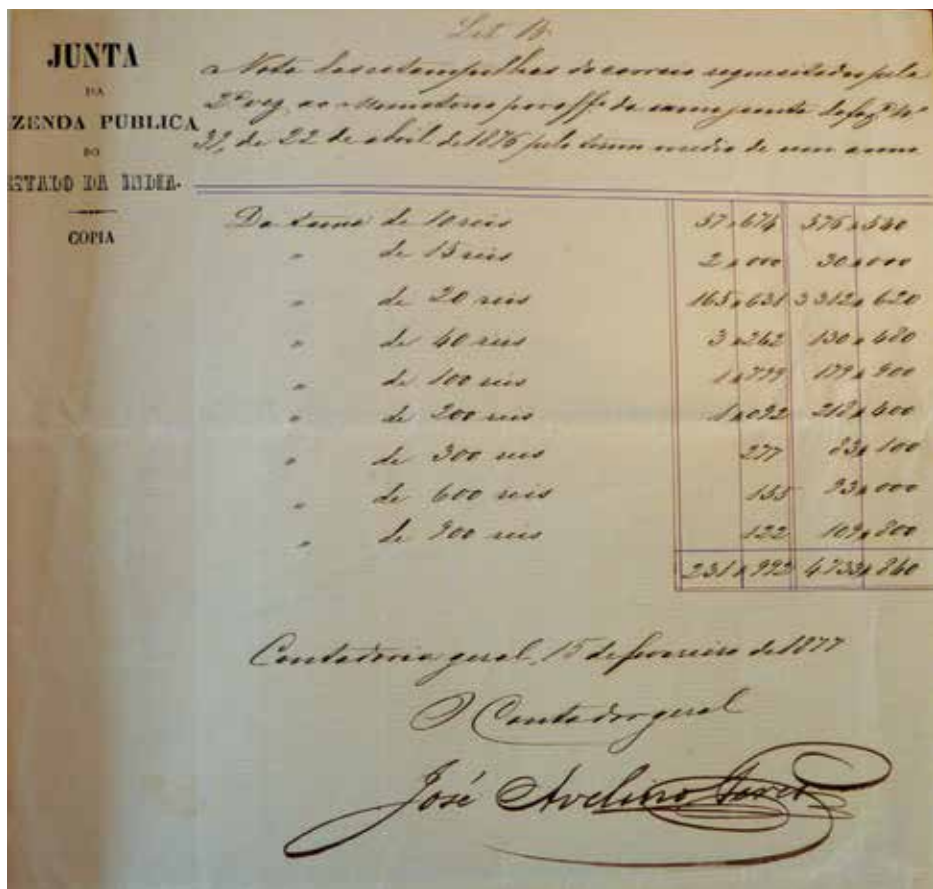 JUNTA
DA
ZENDA PUBLICA
DO
ESTADO DA INDIA.
COPIA
Let B.
a Nota das estampilhas do correio requesitadas pela
2ª ao por off.º da mesma junta da faz.ª nº
31, de 22 de abril de 1876 pelo termo medio de um anno
Da taxa de 10 reis 57»654 576»540
" de 15 reis 2»000 30»000
" de 20 reis 165»631 3312»620
" de 40 reis 3»262 130»480
" de 100 reis 1»799 179»900
" de 200 reis 1»092 218»400
" de 300 reis 277 83»100
" de 600 reis 155 93»000
" de 900 reis 122 109»800
231»992 4733»840
Contadoria geral, 15 de fevereiro de 1877
O Contador geral
José Avelino